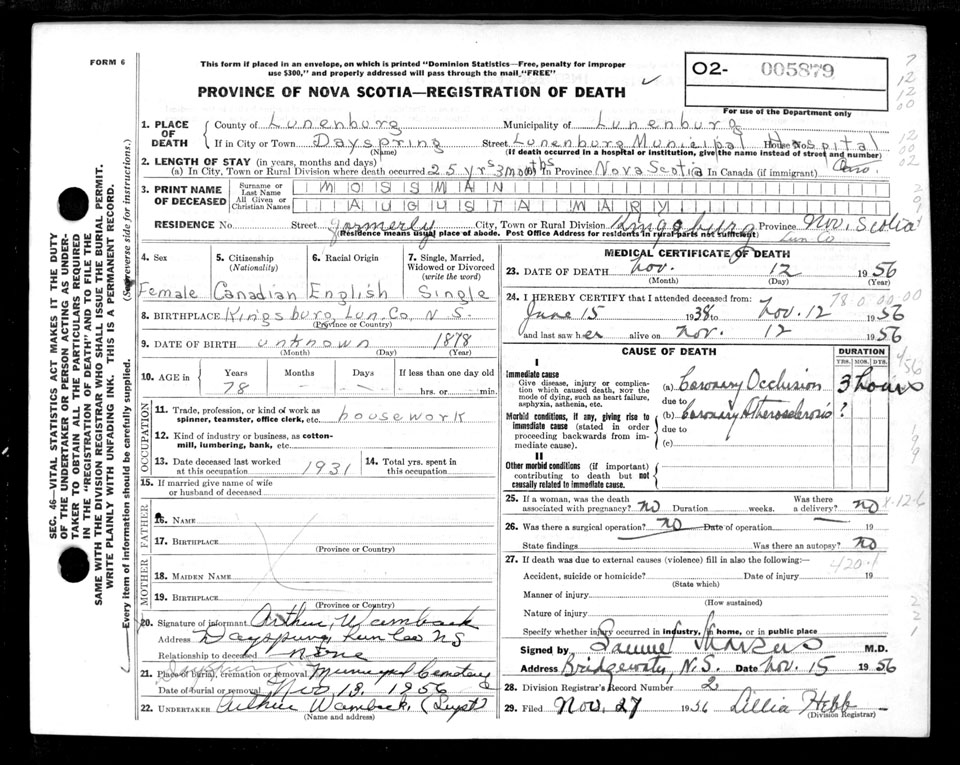 FORM 6
This form if placed in an envelope, on which is printed "Dominion Statistics—Free, penalty for improper
use $300," and properly addressed will pass through the mail "FREE"
PROVINCE OF NOVA SCOTIA—REGISTRATION OF DEATH
O2- 005879
For use of the Department only
SEC. 46—VITAL STATISTICS ACT MAKES IT THE DUTY
OF THE UNDERTAKER OR PERSON ACTING AS UNDER-
TAKER TO OBTAIN ALL THE PARTICULARS REQUIRED
IN THE "REGISTRATION OF DEATH" AND TO FILE THE
SAME WITH THE DIVISION REGISTRAR WHO SHALL ISSUE THE BURIAL PERMIT.
WRITE PLAINLY WITH UNFADING INK. THIS IS A PERMANENT RECORD.
Every item of information should be carefully supplied. (See reverse side for instructions.)
1. PLACE OF DEATH County of Lunenburg Municipality of Lunenburg
If in City or Town Dayspring Street Lunenburg Municipal House No. Hospital
(Name) (If death occurred in a hospital or institution, give the name instead of street and number)
2. LENGTH OF STAY (in years, months and days)
(a) In City, Town or Rural Division where death occurred 25 yrs 3 months (b) In Province Nova Scotia In Canada (if immigrant)
3. PRINT NAME OF DECEASED Surname or Last Name MOSSMAN
All Given or Christian Names AUGUSTA MARY
RESIDENCE No. Street formerly City, Town or Rural Division Kingsburg Province Nov. Scotia
(Residence means usual place of abode. Post Office Address for residents in rural parts not sufficient) Lun Co
4. Sex 5. Citizenship (Nationality) 6. Racial Origin 7. Single, Married, Widowed or Divorced (write the word)
Female Canadian English Single
8. BIRTHPLACE Kingsburg, Lun. Co, N S.
(Province or Country)
9. DATE OF BIRTH unknown 1878
(Month) (Day) (Year)
10. AGE IN Years Months Days If less than one day old
78 - - hrs. or min.
OCCUPATION
11. Trade, profession, or kind of work as
spinner, teamster, office clerk, etc. housework
12. Kind of industry or business, as cotton-
mill, lumbering, bank, etc.
13. Date deceased last worked
at this occupation 1931
14. Total yrs. spent in
this occupation
15. If married give name of wife
or husband of deceased
FATHER
16. NAME
17. BIRTHPLACE
(Province or Country)
MOTHER
18. MAIDEN NAME
19. BIRTHPLACE
(Province or Country)
20. Signature of informant Arthur Wamback
Address Dayspring Lun Co NS
Relationship to deceased None
21. Place of burial, cremation or removal Dayspring Municipal Cemetery
Date of burial or removal Nov 13. 1956
22. UNDERTAKER Arthur Wamback, (Supt)
(Name and address)
MEDICAL CERTIFICATE OF DEATH
23. DATE OF DEATH Nov. 12 1956
(Month) (Day) (Year)
24. I HEREBY CERTIFY that I attended deceased from:
78 0 00 00
June 15 1938 to Nov. 12 1956
and last saw her alive on Nov. 12 1956
CAUSE OF DEATH DURATION
YRS. MOS. DYS.
I
Immediate cause
Give disease, injury or complica-
tion which caused death, NOT the
mode of dying, such as heart failure,
asphyxia, asthenia, etc.
(a) Coronary Occlusion 3 hours
due to
Morbid conditions, if any, giving rise to
immediate cause (stated in order
proceeding backwards from im-
mediate cause).
(b) Coronary Atherosclerosis ?
due to
(c)
II
Other morbid conditions (if important)
contributing to death but not
causally related to immediate cause.
25. If a woman, was the death
associated with pregnancy? no Duration weeks. Was there a delivery? no
26. Was there a surgical operation? no Date of operation 19
State findings Was there an autopsy? no
27. If death was due to external causes (violence) fill in also the following:—
420.1
Accident, suicide or homicide? Date of injury 19
(State which)
Manner of injury
(How sustained)
Nature of injury
Specify whether injury occurred in industry, in home, or in public place
Signed by Samuel Marcus M.D.
Address Bridgewater, N.S. Date Nov. 15 1956
28. Division Registrar's Record Number 2
29. Filed Nov. 27 1956 Lillia Hebb
(Division Registrar)